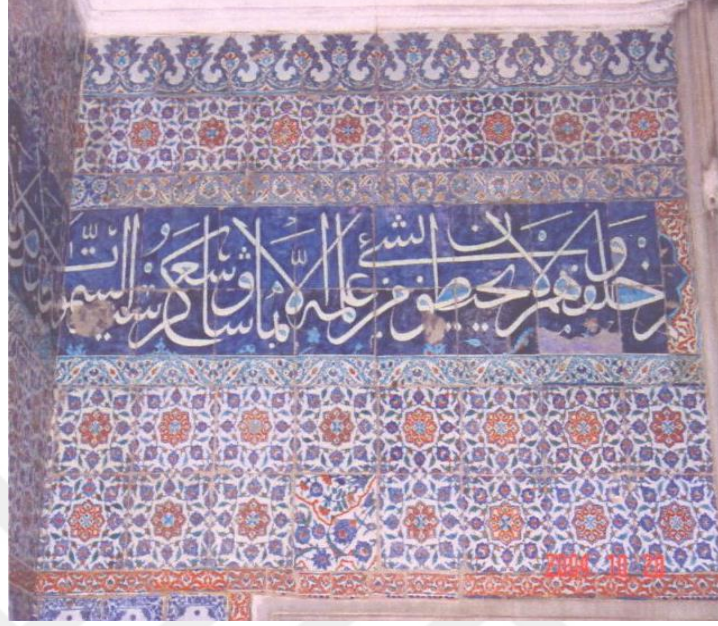 خلفهم ولا يحيطون بشئ من علمه الا بما شا وسع كرسيه السموات